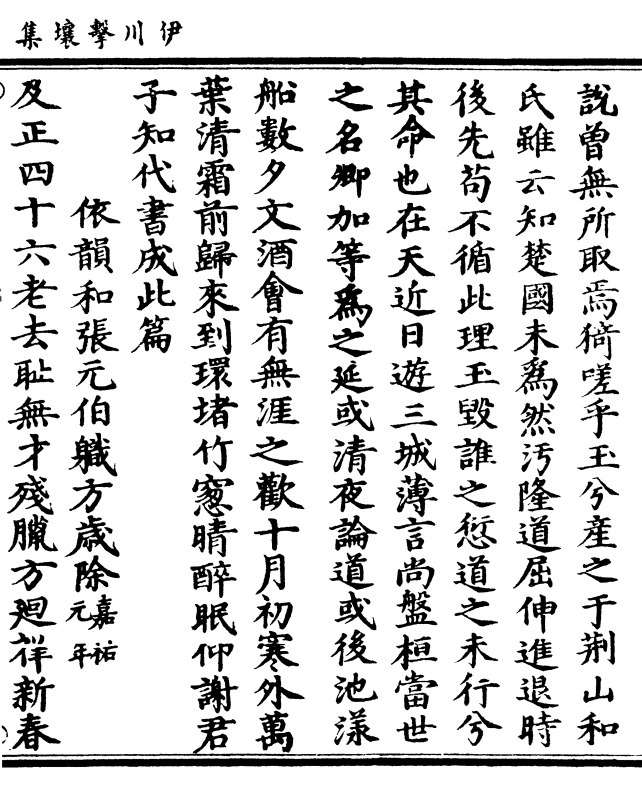 伊川擊壤集
說曾無所取焉猗嗟乎玉兮産之于荆山和
氏雖云知楚國未爲然汚隆道屈伸進退時
後先苟不循此理玉毀誰之愆道之未行兮
其命也在天近日遊三城薄言尚盤桓當世
之名卿加等爲之延或清夜論道或後池漾
船數夕文酒會有無涯之歡十月初寒外萬
葉清霜前歸來到環堵竹窻晴醉眠仰謝君
子知代書成此篇
依韻和張元伯職方歲除嘉祐元年
及正四十六老去耻無才殘臘方廻律新春